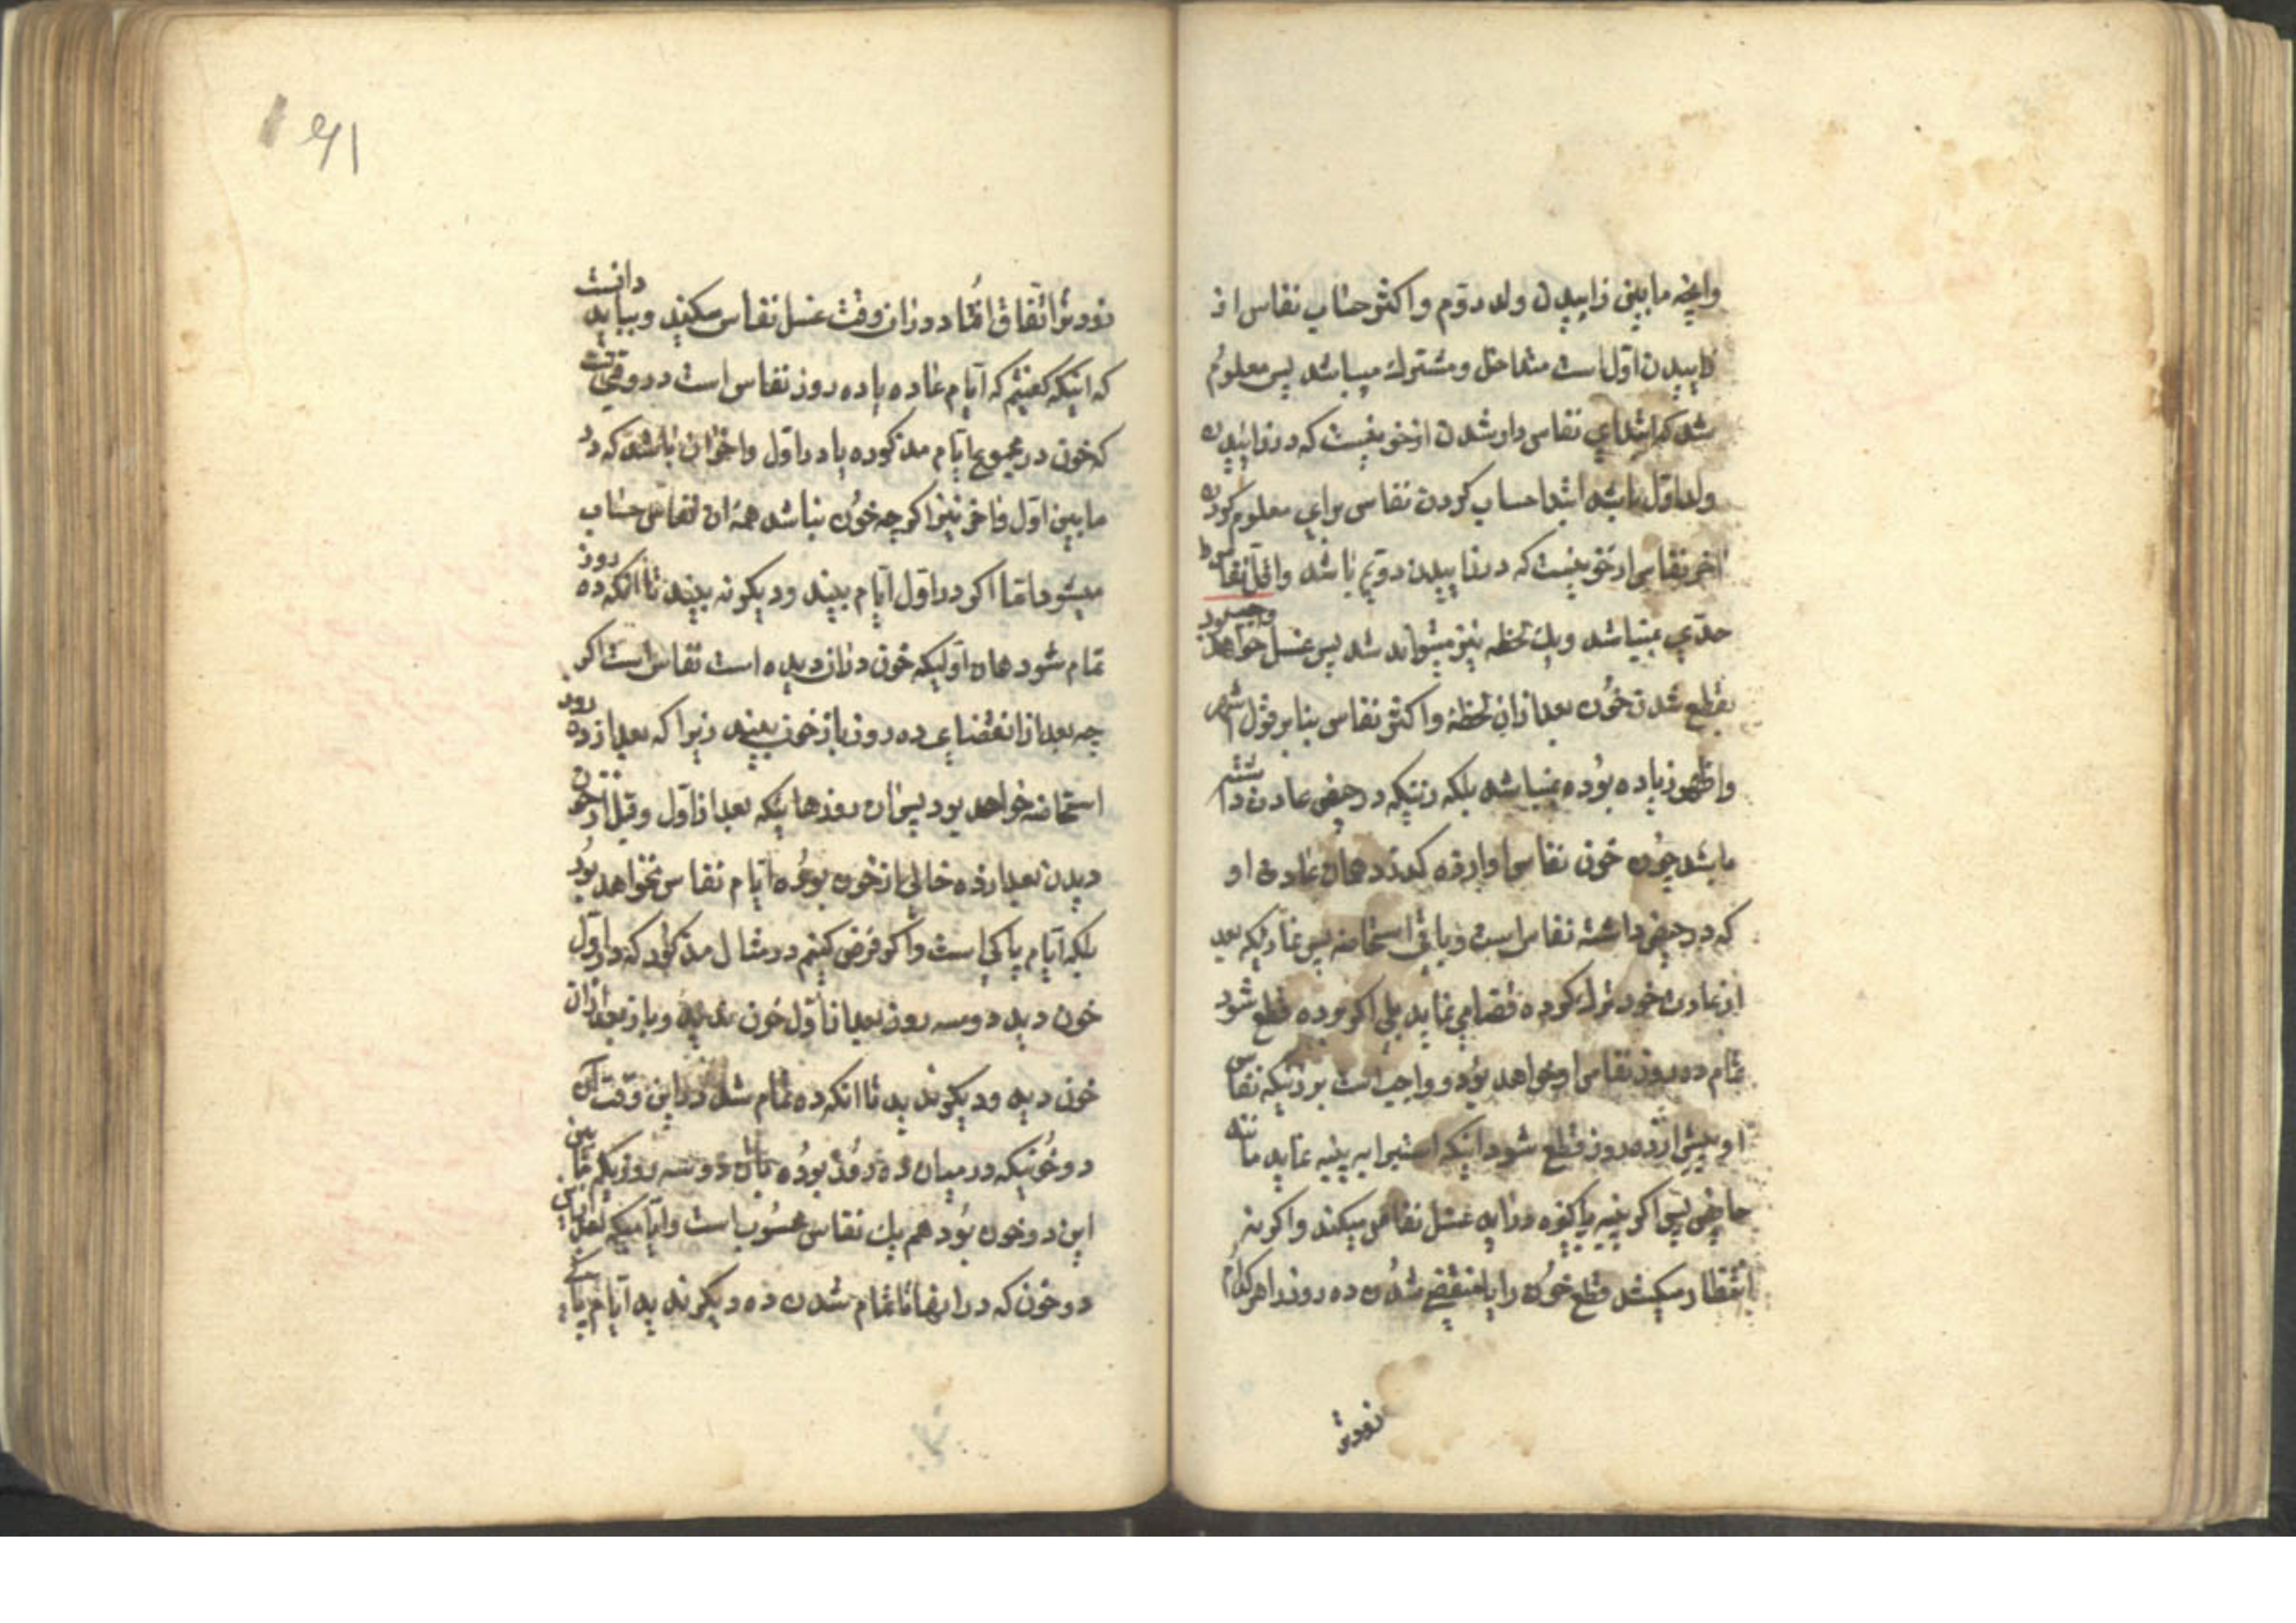 وانچه مابین زاییدن ولد دوّم واکثر حساب نفاس از
زاییدن اول است متداخل ومشترك میباشد پس معلوم
شد که ابتدای نفاس دار شدن از خونیست که در زاییدن
ولد اوّل باشد ابتدا حساب کردن نفاس برای معلوم کردن
آخر نفاس از خونیست که در زاییدن دویّم باشد واقل نفاس
حدّی نمیباشد ویك لحظه نیز میتواند شد پس غسل خواهد
بقطع شدن خون بعد ازان لحظه واکثر نفاس بنابر قول اشهر
واظهر زیاده بوده نمیباشد بلکه زنیکه در حیض عادت داشته
باشد چون خون نفاس او از ده گذرد همان عادت او
که در حیض داشته نفاس است وباقی استحاضه پس نمازیکه بعد
از عادت خود ترك کرده قضا می نماید بلی اکر بر ده قطع شود
تمام ده روز نفاس او خواهد بود و واجب است بر زنیکه نفاس
او پیش از ده روز قطع شود اینکه استبرا به پنبه نماید مانند
حایض پس اکر پنبه پاکیزه دراید غسل نفاس میکند واکر نه
انتظار میکشد قطع خون را یا منقضی شدن ده روز را هر کدام
زودتر
زودتر اتفاق افتاد دران وقت غسل نفاس میکند وبباید دانست
که اینکه کفتیم که ایّام عاده یا ده روز نفاس است در وقتی است
که خون در مجموع ایّام مذکوره یا در اوّل واخر ان باشد که در
مابین اوّل واخر نیز اکر چه خون نباشد همه ان نفاس حساب
میشود امّا اکر در اوّل ایّام بیند ودیکر نه بیند تا انکه ده روز
تمام شود همان اوّلیکه خون دران دیده است نفاس است اکر
چه بعد از انقضای ده روز باز خون بیند زیرا که بعد از ده روز
استحاضه خواهد بود پس ان روزهاییکه بعد از اوّل وقبل از خون
دیدن بعد از ده خالی از خون بوده ایّام نفاس نخواهد بود
بلکه ایّام پاکی است واکر فرض کنیم در مثال مذکور که در اوّل
خون دید دو سه روز بعد از اوّل خون ندید وباز بعد ازان
خون دید ودیکر ندید تا انکه ده تمام شد در این وقت آن
دو خونیکه در میان ده روز بوده با ان دو سه روزیکه مابین
این دو خون بود هم یك نفاس محسوب است وایّامیکه بعد از این
دو خون که در انها تا تمام شدن ده دیکر ندید ایّام پاکی